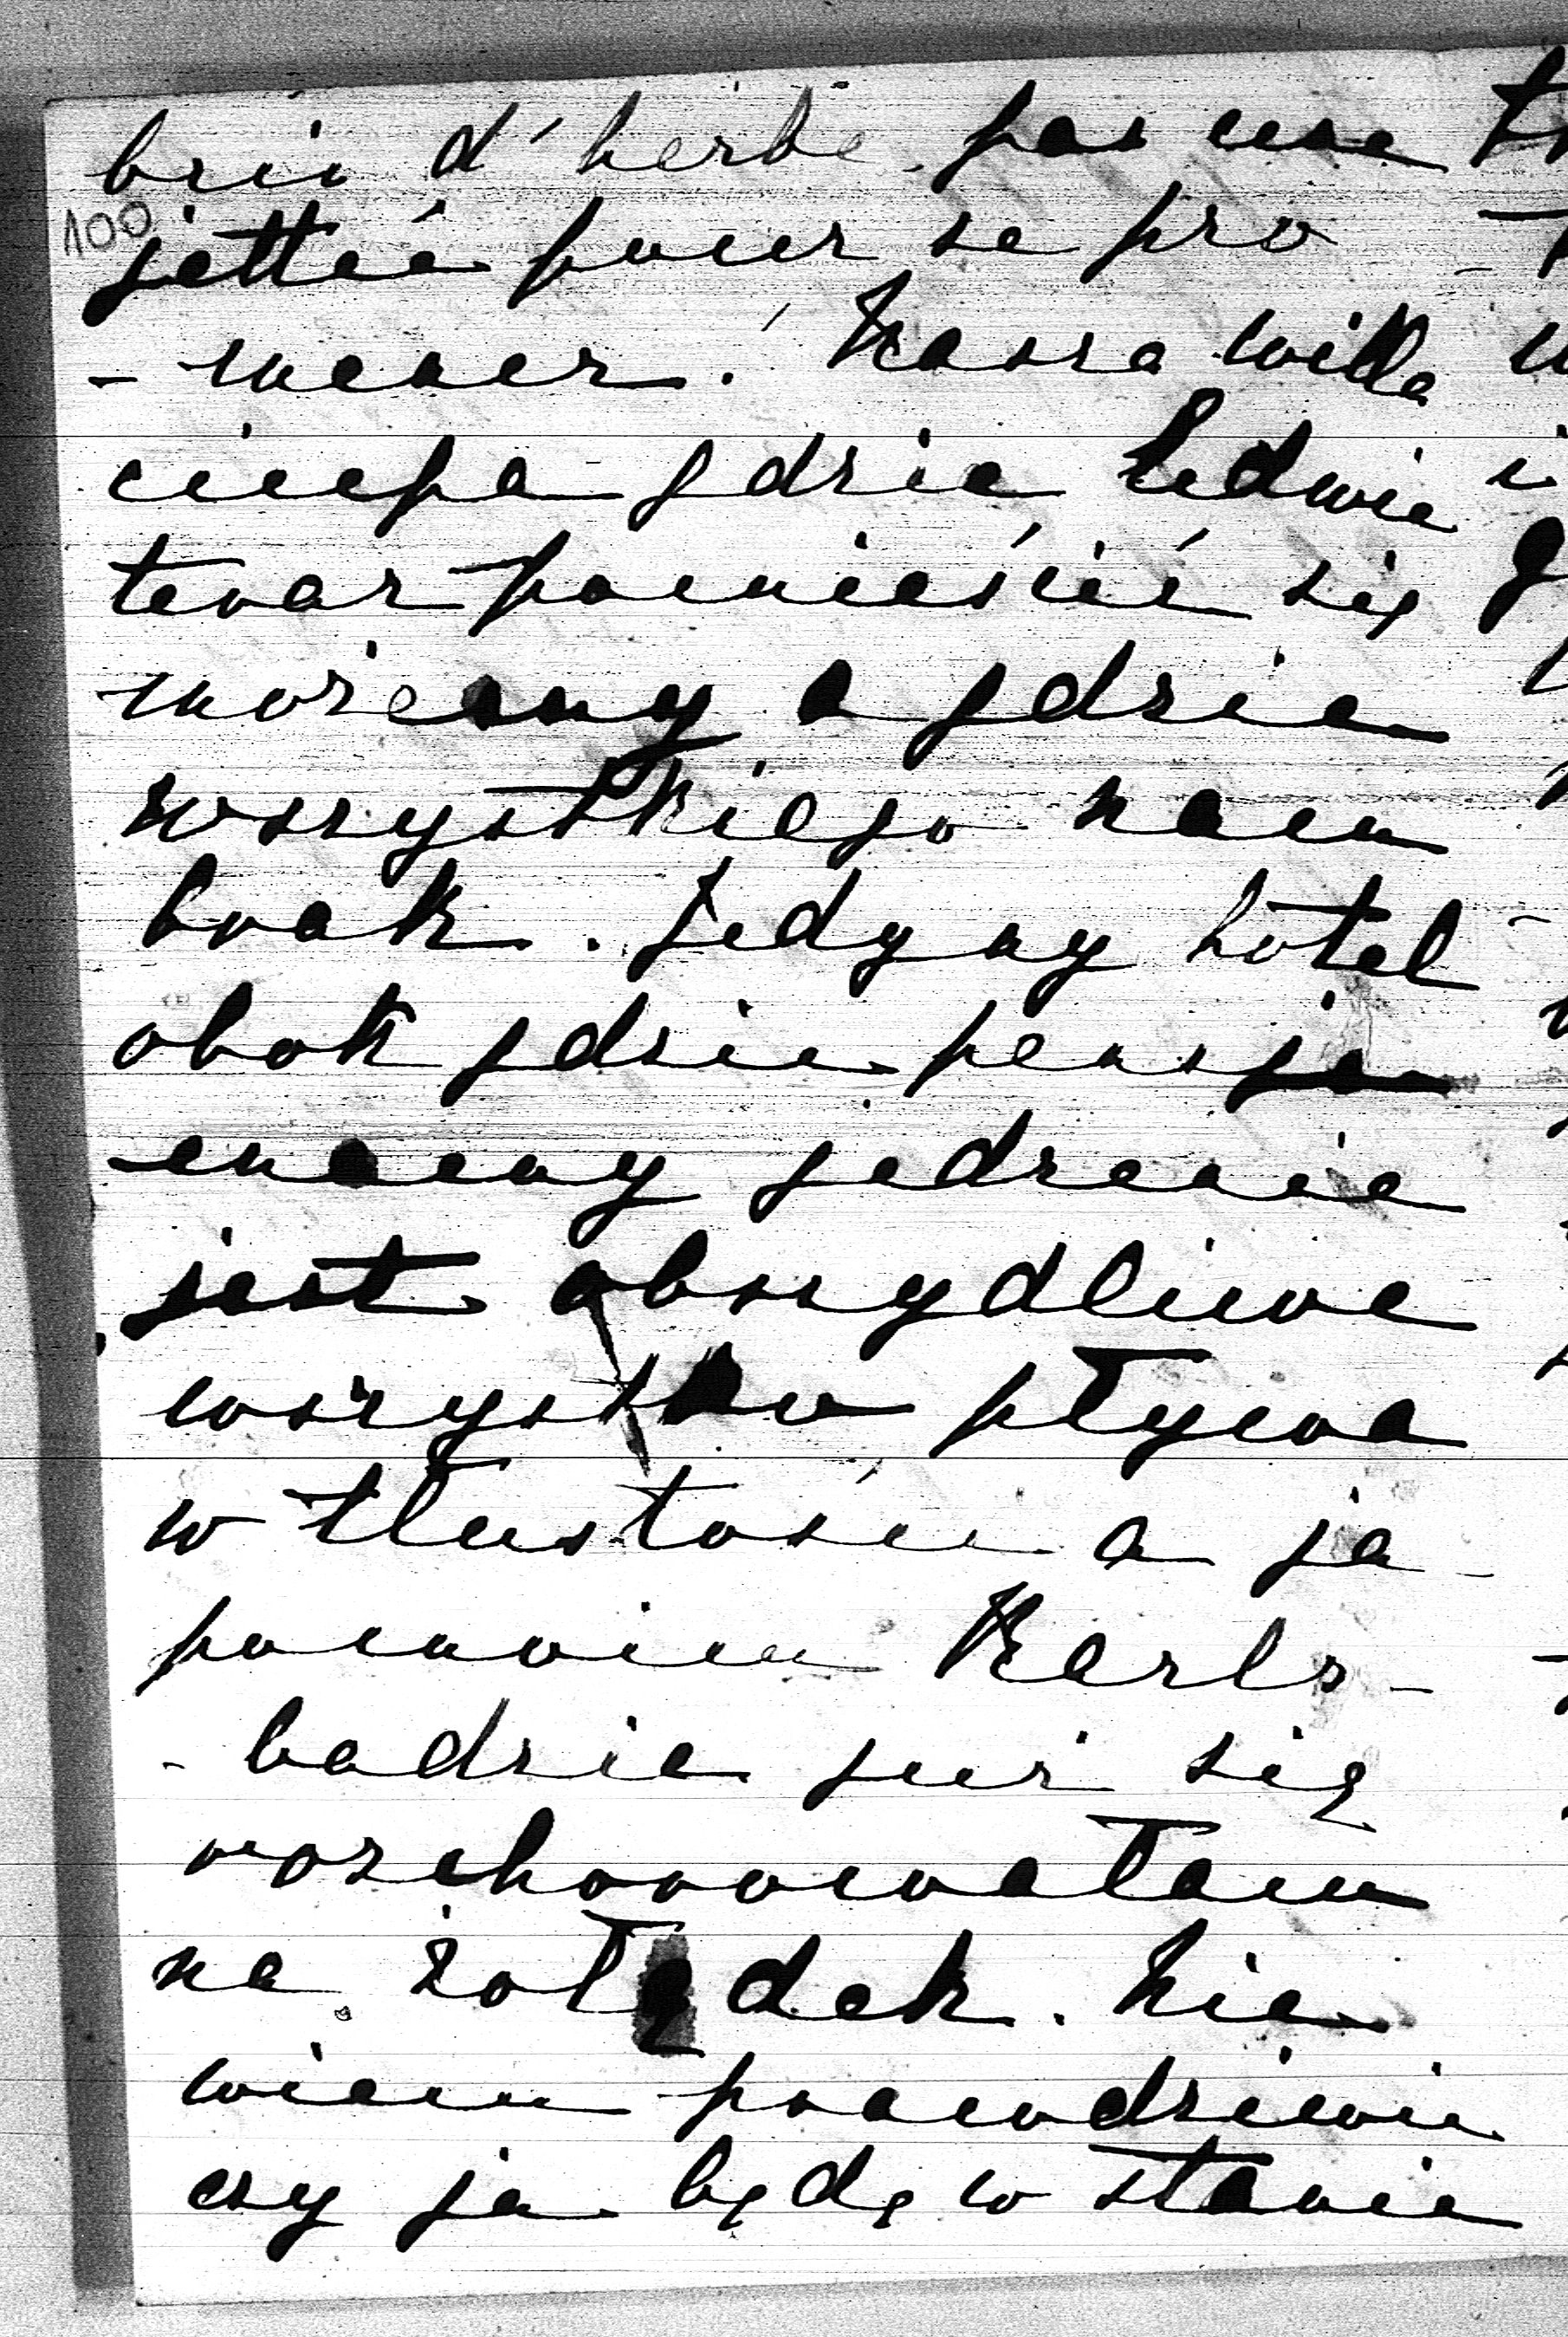 brin d'herbe pas une
100
jettée pour se pro
- mener. Nasza willa
ciupa gdzie ledwie
teraz pomieścić się
możemy a gdzie
wszystkiego nam
brak. Jedyny hotel
obok gdzie pensję
mamy jedzenie
jest obrzydliwe
wszystko pływa
w tłustości a ja
Karls-
- badzie już się
rozchorowałam
na żołądek. Nie
wiem prawdziwie
czy ja będę w stanie